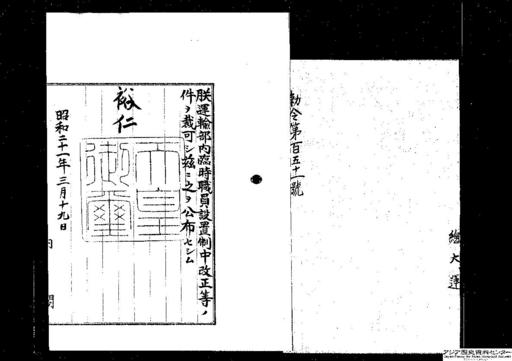 勅令第百五十一號
總
大
運
朕運輸部內臨時職員設置制中改正等ノ
件ヲ裁可シ茲ニ之ヲ公布セシム
裕仁
天皇御璽
昭和二十一年三月十九日
内閣
アジア歴史資料センター